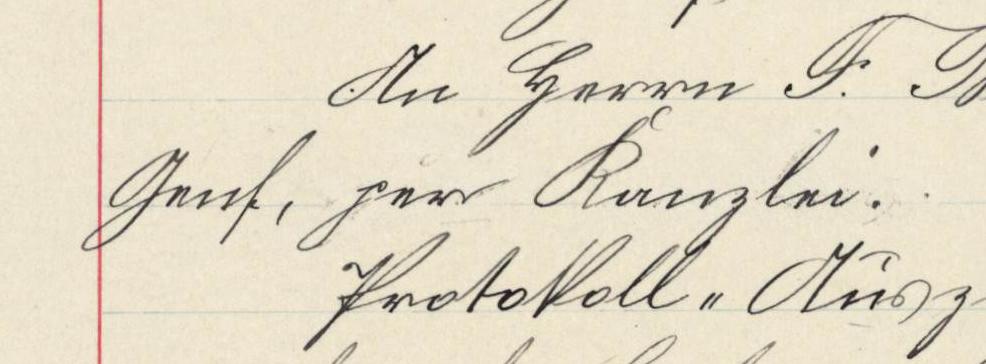 An Herrn F.
Genf, per Kanzlei.
Protokoll-Ausz